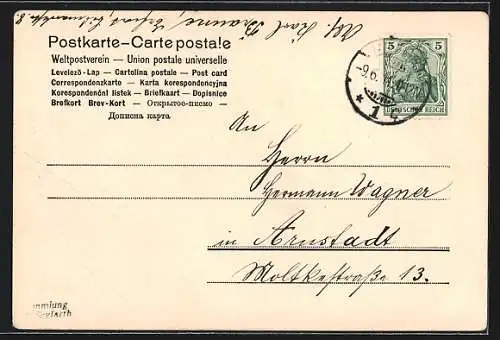 Abs. Karl Braune, Erfurt,
Postkarte – Carte postale
Weltpostverein — Union postale universelle
Levelező-Lap — Cartolina postale — Post card
Correspondenzkarte — Karta korespondencyjna
Korespondenční listek — Briefkaart — Dopisnice
Brefkort Brev-Kort — Открытое-письмо —
Дописна карта
5 5
DEUTSCHES REICH
-9.6.
* 1
An
Herrn
Hermann Wagner
in Arnstadt
Moltkestraße 13.